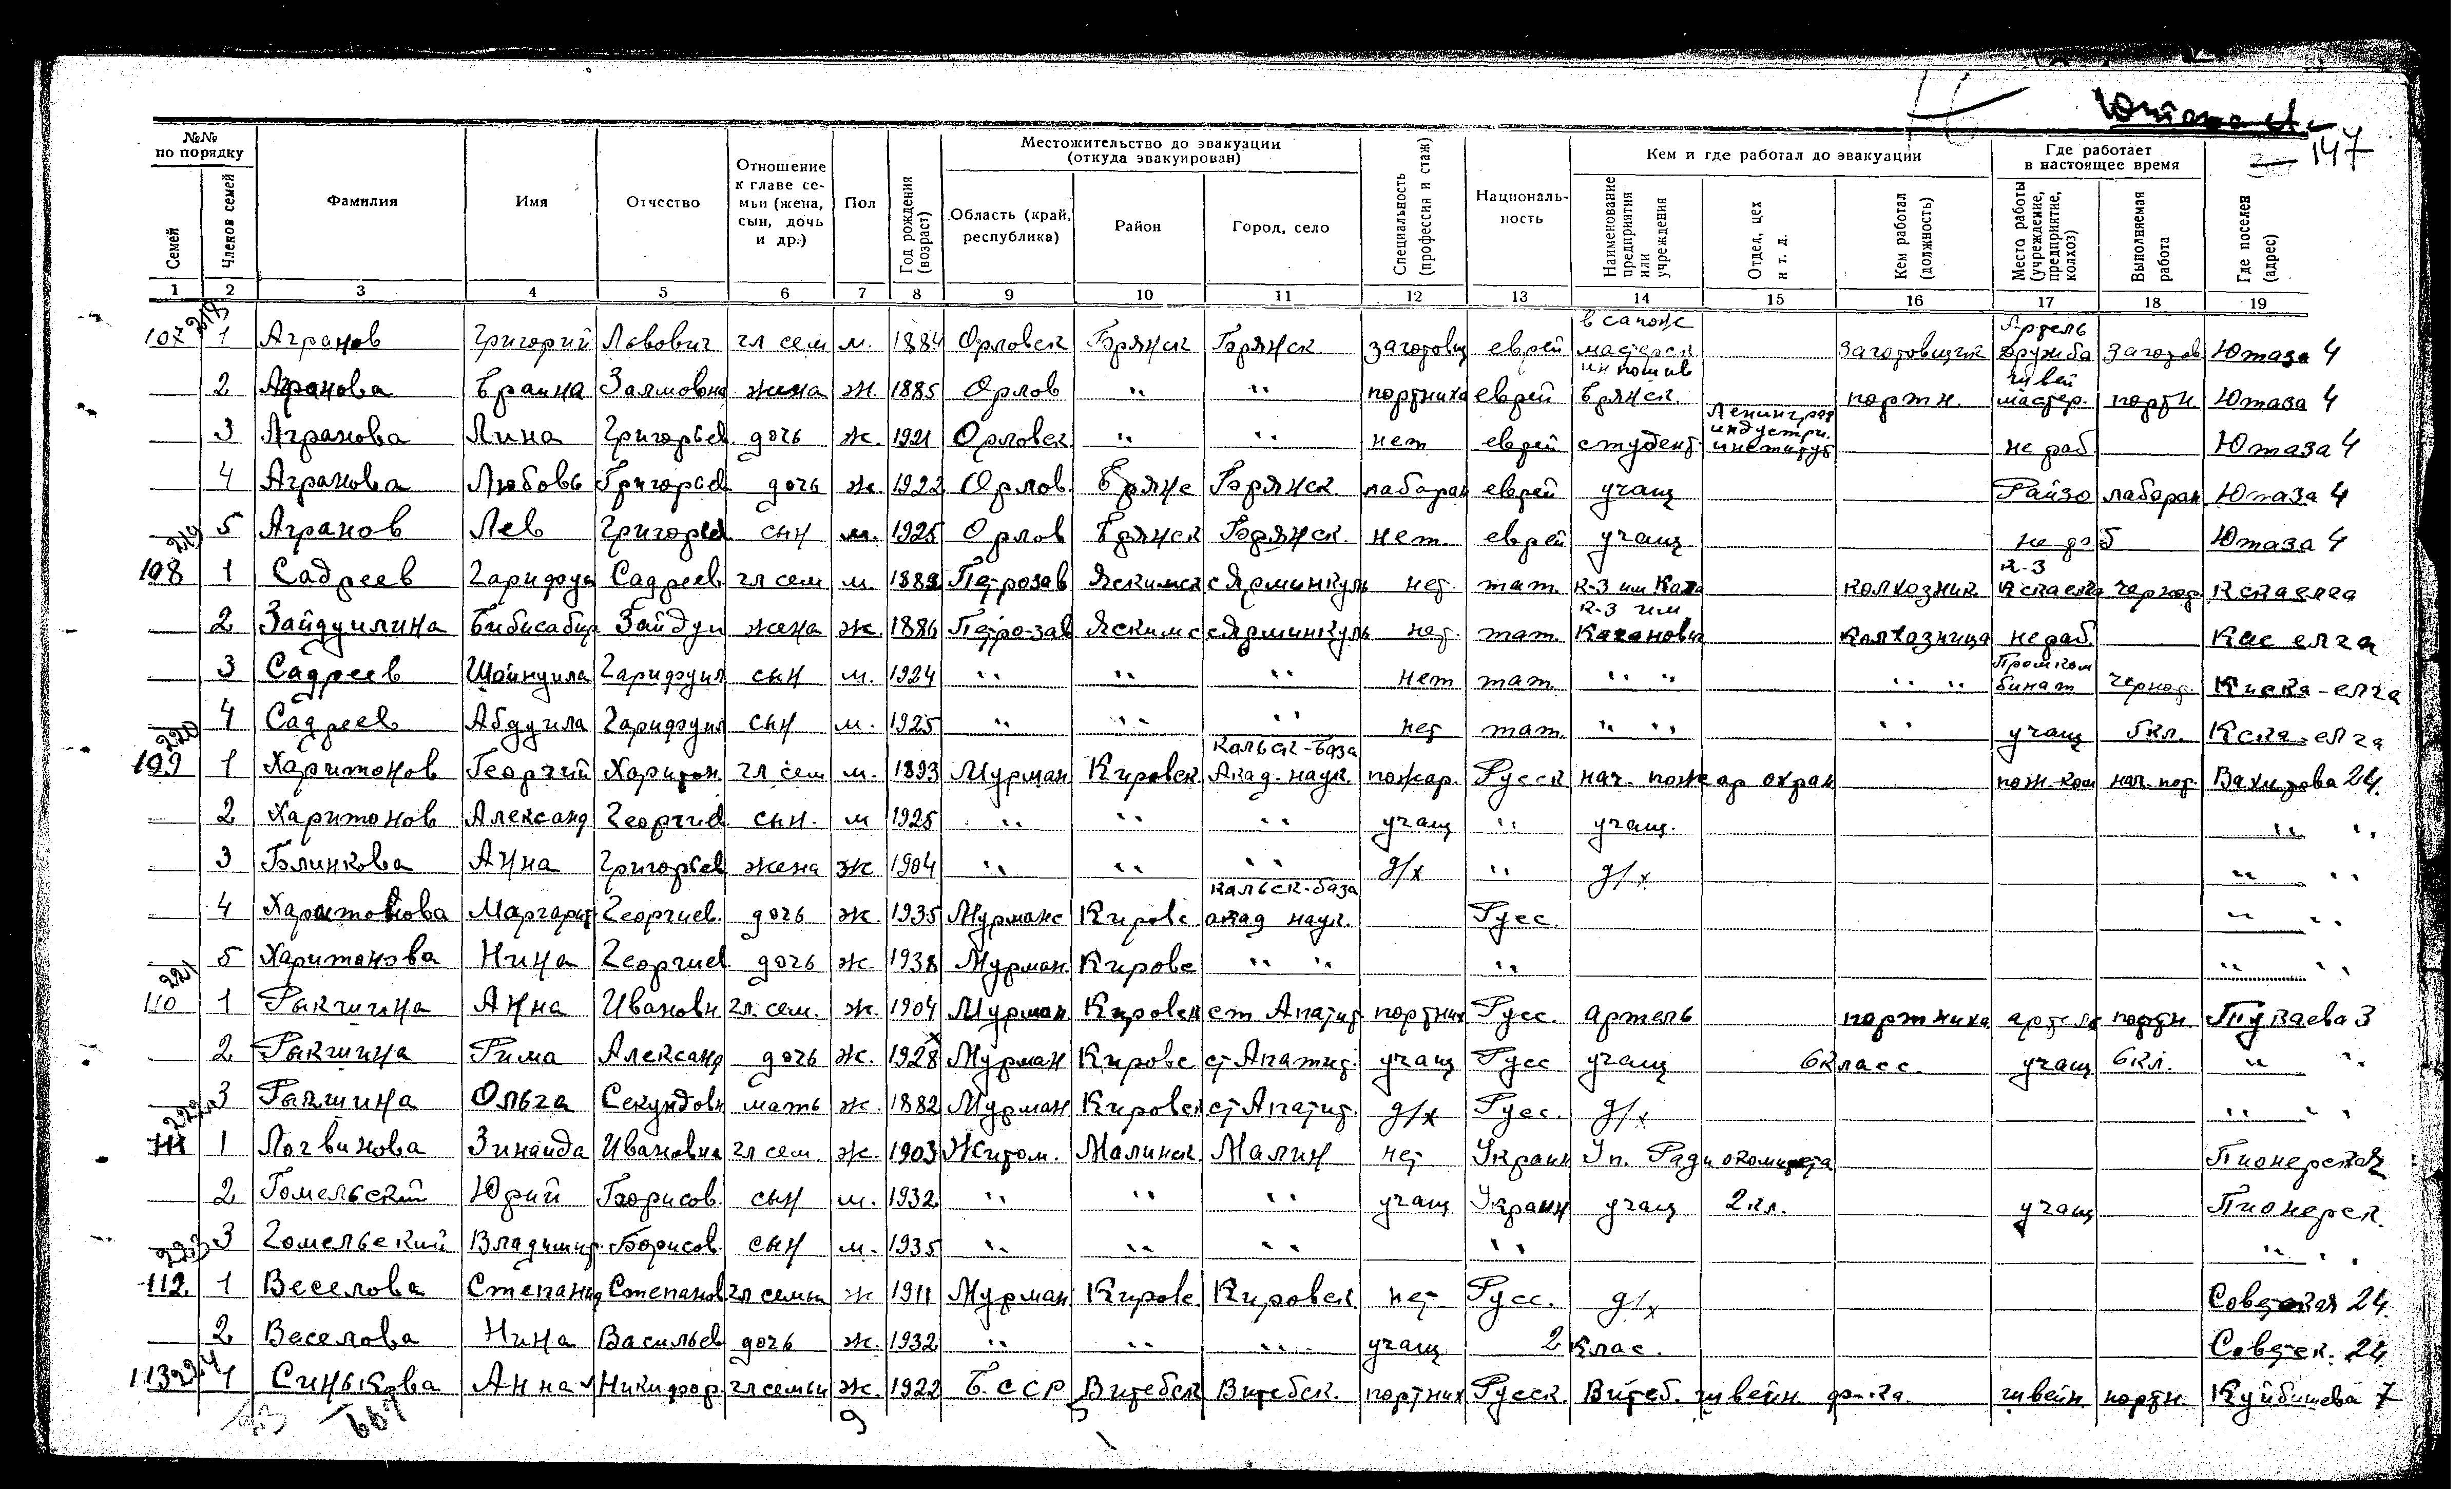 147
№№ по порядку
Семей
Членов семей
Фамилия
Имя
Отчество
Отношение к главе семьи (жена, сын, дочь и др.)
Пол
Год рождения (возраст)
Местожительство до эвакуации (откуда эвакуирован)
Область (край, республика)
Район
Город, село
Специальность (профессия и стаж)
Национальность
Кем и где работал до эвакуации
Наименование предприятия или учреждения
Отдел, цех и т. д.
Кем работал (должность)
Где работает в настоящее время
Место работы (учреждение, предприятие, колхоз)
Выполняемая работа
Где поселен (адрес)
1 2 3 4 5 6 7 8 9 10 11 12 13 14 15 16 17 18 19
107 218 1 Агранов Григорий Львович гл сем м. 1884 Орловск Брянск Брянск заготовщ еврей в сапож мастерск заготовщик Артель дружба заготов Ютаза 4
2 Агранова Браина Залмовна жена ж. 1885 Орлов " " портниха еврей Брянск. портн. швей мастер. портн. Ютаза 4
3 Агранова Лина Григорьев. дочь ж. 1921 Орловск " " нет еврей студент. Ленинград индустри. институт не раб Ютаза 4
4 Агранова Любовь Григорьев дочь ж. 1922 Орлов. Брянс Брянск лаборан еврей учащ Райзо лаборан Ютаза 4
5 Агранов Лев Григорьев сын м. 1925 Орлов Брянск Брянск. нет. еврей учащ Ютаза 4
219 108 1 Садреев Садреев гл сем м. Петрозав нет. тат. колхозник к-з
2 Зайдулина Зайдул жена ж. 1886 Петро-зав нет. тат. к-з им колхозница не раб.
3 Садреев сын м. 1924 " " " нет тат. " " " " Промком бинат
4 Садреев Абдула сын м. 1925 " " " нет тат. " " " " учащ 5 кл.
220 109 1 Харитонов Георгий Харитон гл сем м. 1893 Мурман Кировск Кольск-База Акад. наук пожар. Русск нач. пожар охран пож-ком Вахитова 24.
2 Харитонов Александ Георгиев сын. м 1925 " " " учащ " учащ. " "
3 Блинкова Анна Григорьев жена ж 1904 " " " д/х " д/х " "
4 Харитонова Маргарит Георгиев. дочь ж. 1935 Мурманс Кировс Кольск-база акад наук. Русс. " "
5 Харитонова Нина Георгиев дочь ж. 1938 Мурман Кировс " " " " "
221 110 1 Ракшина Анна Ивановн гл. сем. ж. 1904 Мурман Кировск ст Апатит портних Русс. артель портниха артель портн Тукаева 3
2 Ракшина Рима Александ дочь ж. 1928 Мурман Кировс ст Апатит. учащ Русс учащ 6 класс. учащ 6 кл. " "
222 3 Ракшина Ольга Секундовн мать ж. 1882 Мурман Кировск ст Апатит. д/х Русс. д/х " "
111 1 Логвинова Зинаида Ивановна гл сем. ж. 1903 Житом. Малинск. Малин нет Украин Радиокомитета Пионерская
2 Гомельский Юрий Борисов. сын м. 1932 " " " учащ Украин учащ 2 кл. учащ Пионерск.
3 Гомельский Владимир. Борисов. сын м. 1935 " " " " " "
223 112 1 Веселова Степанид Степанов гл семьи ж 1911 Мурман Кировс Кировск нет Русс. д/х Советская 24.
2 Веселова Нина Васильев дочь ж. 1932 " " " учащ 2 клас. Советск. 24
113 224 1 Синькова Анна Никифор. гл семьи ж. 1922 Б.ССР Витебск Витебск. портних Русск. Витеб. швейн. ф-ка. швейн. портн. Куйбишева 7
607
9